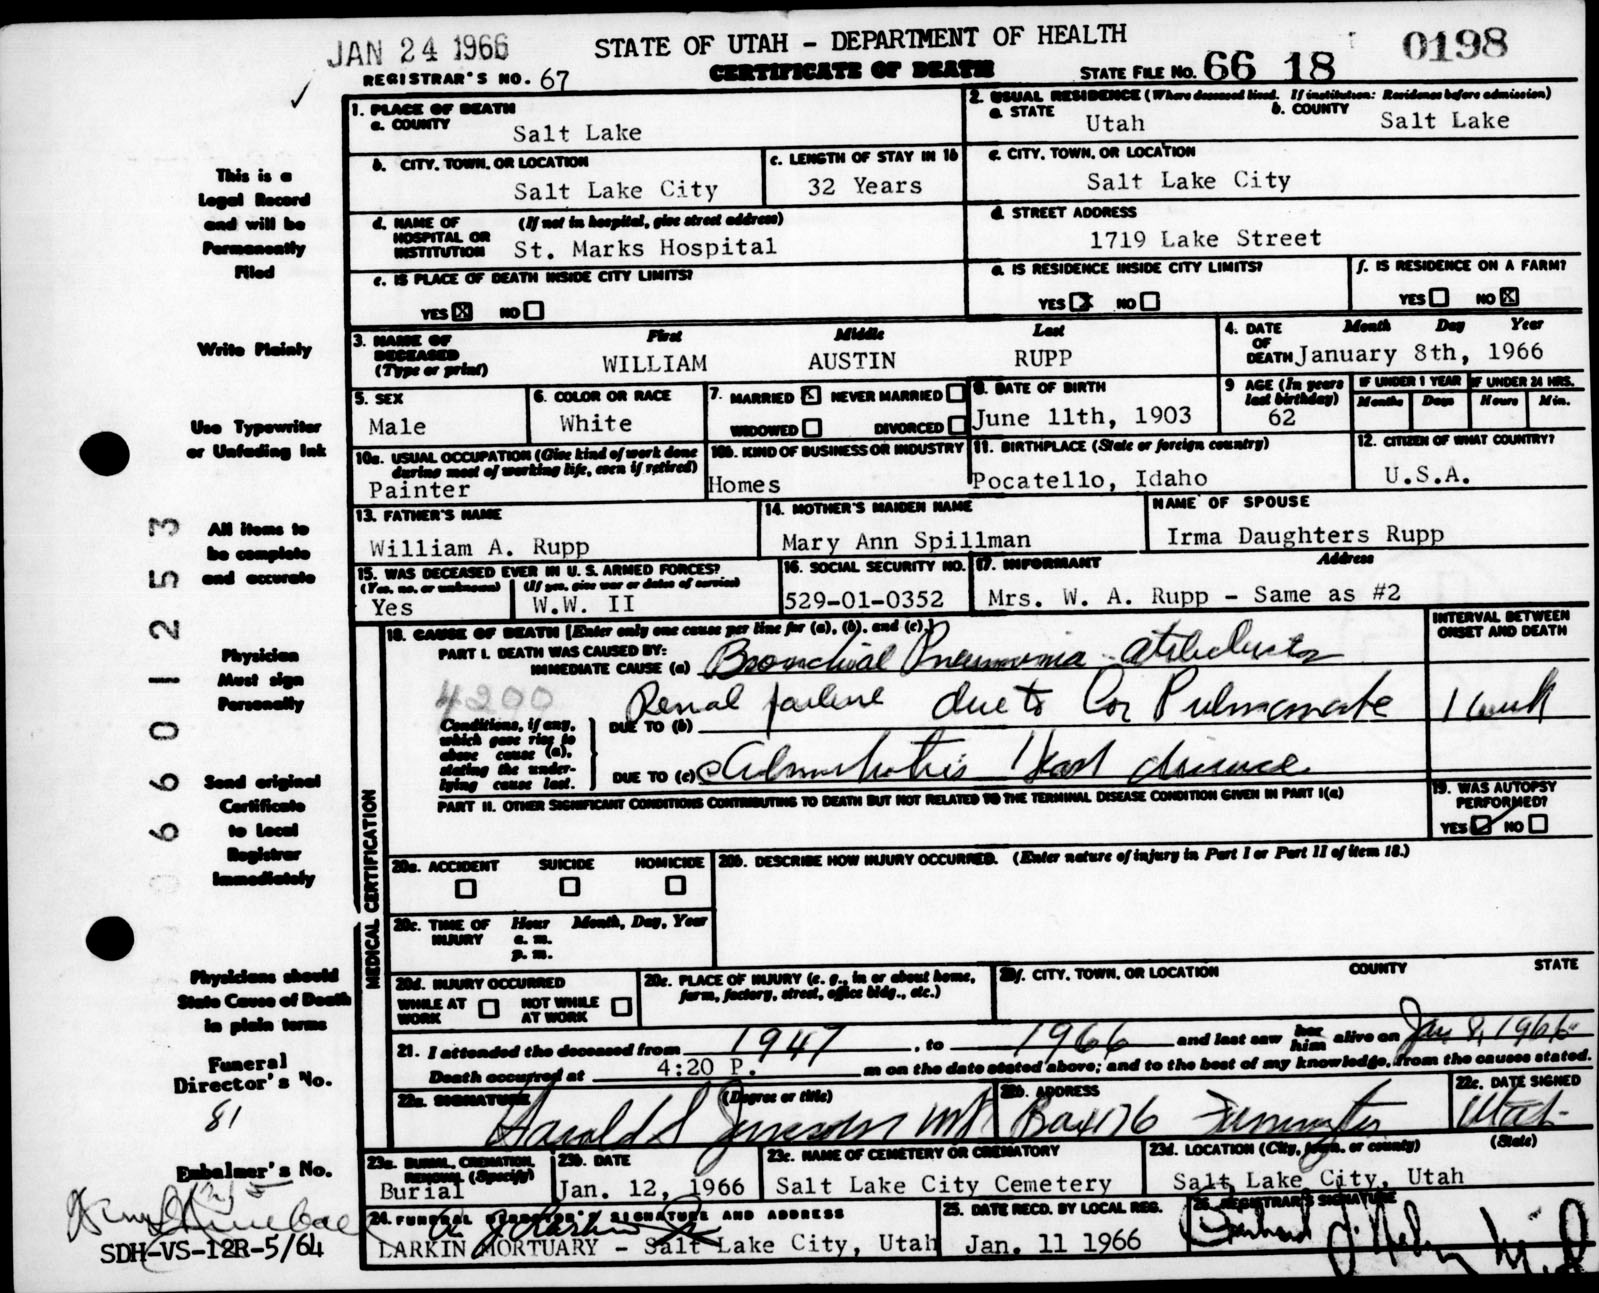 JAN 24 1966
STATE OF UTAH - DEPARTMENT OF HEALTH
0198
REGISTRAR'S NO. 67
CERTIFICATE OF DEATH
STATE FILE NO. 66 18
1. PLACE OF DEATH
a. COUNTY
Salt Lake
2. USUAL RESIDENCE (Where deceased lived. If institution: Residence before admission)
a. STATE Utah b. COUNTY Salt Lake
b. CITY, TOWN, OR LOCATION
Salt Lake City
c. LENGTH OF STAY IN 1b
32 Years
c. CITY, TOWN, OR LOCATION
Salt Lake City
d. NAME OF HOSPITAL OR INSTITUTION (If not in hospital, give street address)
St. Marks Hospital
d. STREET ADDRESS
1719 Lake Street
e. IS PLACE OF DEATH INSIDE CITY LIMITS?
YES ☒ NO ☐
e. IS RESIDENCE INSIDE CITY LIMITS?
YES ☒ NO ☐
f. IS RESIDENCE ON A FARM?
YES ☐ NO ☒
3. NAME OF DECEASED (Type or print)
First Middle Last
WILLIAM AUSTIN RUPP
4. DATE OF DEATH Month Day Year
January 8th, 1966
5. SEX
Male
6. COLOR OR RACE
White
7. MARRIED ☒ NEVER MARRIED ☐
WIDOWED ☐ DIVORCED ☐
8. DATE OF BIRTH
June 11th, 1903
9 AGE (In years last birthday)
62
IF UNDER 1 YEAR
Months Days
IF UNDER 24 HRS.
Hours Min.
10a. USUAL OCCUPATION (Give kind of work done during most of working life, even if retired)
Painter
10b. KIND OF BUSINESS OR INDUSTRY
Homes
11. BIRTHPLACE (State or foreign country)
Pocatello, Idaho
12. CITIZEN OF WHAT COUNTRY?
U.S.A.
13. FATHER'S NAME
William A. Rupp
14. MOTHER'S MAIDEN NAME
Mary Ann Spillman
NAME OF SPOUSE
Irma Daughters Rupp
15. WAS DECEASED EVER IN U. S. ARMED FORCES?
(Yes, no. or unknown) (If yes, give war or dates of service)
Yes W.W. II
16. SOCIAL SECURITY NO.
529-01-0352
17. INFORMANT Address
Mrs. W. A. Rupp - Same as #2
MEDICAL CERTIFICATION
18. CAUSE OF DEATH [Enter only one cause per line for (a), (b), and (c).]
INTERVAL BETWEEN ONSET AND DEATH
PART I. DEATH WAS CAUSED BY:
IMMEDIATE CAUSE (a) Bronchial Pneumonia
4200
Renal failure due to Cor Pulmonale 1 week
Conditions, if any, which gave rise to above cause (a), stating the underlying cause last.
DUE TO (b)
DUE TO (c) Heart disease
PART II. OTHER SIGNIFICANT CONDITIONS CONTRIBUTING TO DEATH BUT NOT RELATED TO THE TERMINAL DISEASE CONDITION GIVEN IN PART I(a)
19. WAS AUTOPSY PERFORMED?
YES ☑ NO ☐
20a. ACCIDENT SUICIDE HOMICIDE
20b. DESCRIBE HOW INJURY OCCURRED. (Enter nature of injury in Part I or Part II of item 18.)
20c. TIME OF INJURY Hour Month, Day, Year
a. m.
p. m.
20d. INJURY OCCURRED
WHILE AT WORK ☐ NOT WHILE AT WORK ☐
20e. PLACE OF INJURY (e. g., in or about home, farm, factory, street, office bldg., etc.)
20f. CITY, TOWN, OR LOCATION COUNTY STATE
21. I attended the deceased from 1947, to 1966 and last saw her him alive on Jan 8, 1966
Death occurred at 4:20 P. m on the date stated above; and to the best of my knowledge, from the causes stated.
22a. SIGNATURE (Degree or title)
Harold S MD
22b. ADDRESS
Box 176 Utah
22c. DATE SIGNED
23a. BURIAL, CREMATION, REMOVAL (Specify)
Burial
23b. DATE
Jan. 12, 1966
23c. NAME OF CEMETERY OR CREMATORY
Salt Lake City Cemetery
23d. LOCATION (City, town. or county) (State)
Salt Lake City, Utah
24. FUNERAL DIRECTOR'S SIGNATURE AND ADDRESS
LARKIN MORTUARY - Salt Lake City, Utah
25. DATE RECD. BY LOCAL REG.
Jan. 11 1966
26. REGISTRAR'S SIGNATURE
This is a
Legal Record
and will be
Permanently
Filed
Write Plainly
Use Typewriter
or Unfading Ink
All items to
be complete
and accurate
Physician
Must sign
Personally
Send original
Certificate
to Local
Registrar
Immediately
Physicians should
State Cause of Death
in plain terms
Funeral
Director's No.
81
Embalmer's No.
SDH-VS-12R-5/64
0 6 6 0 1 2 5 3